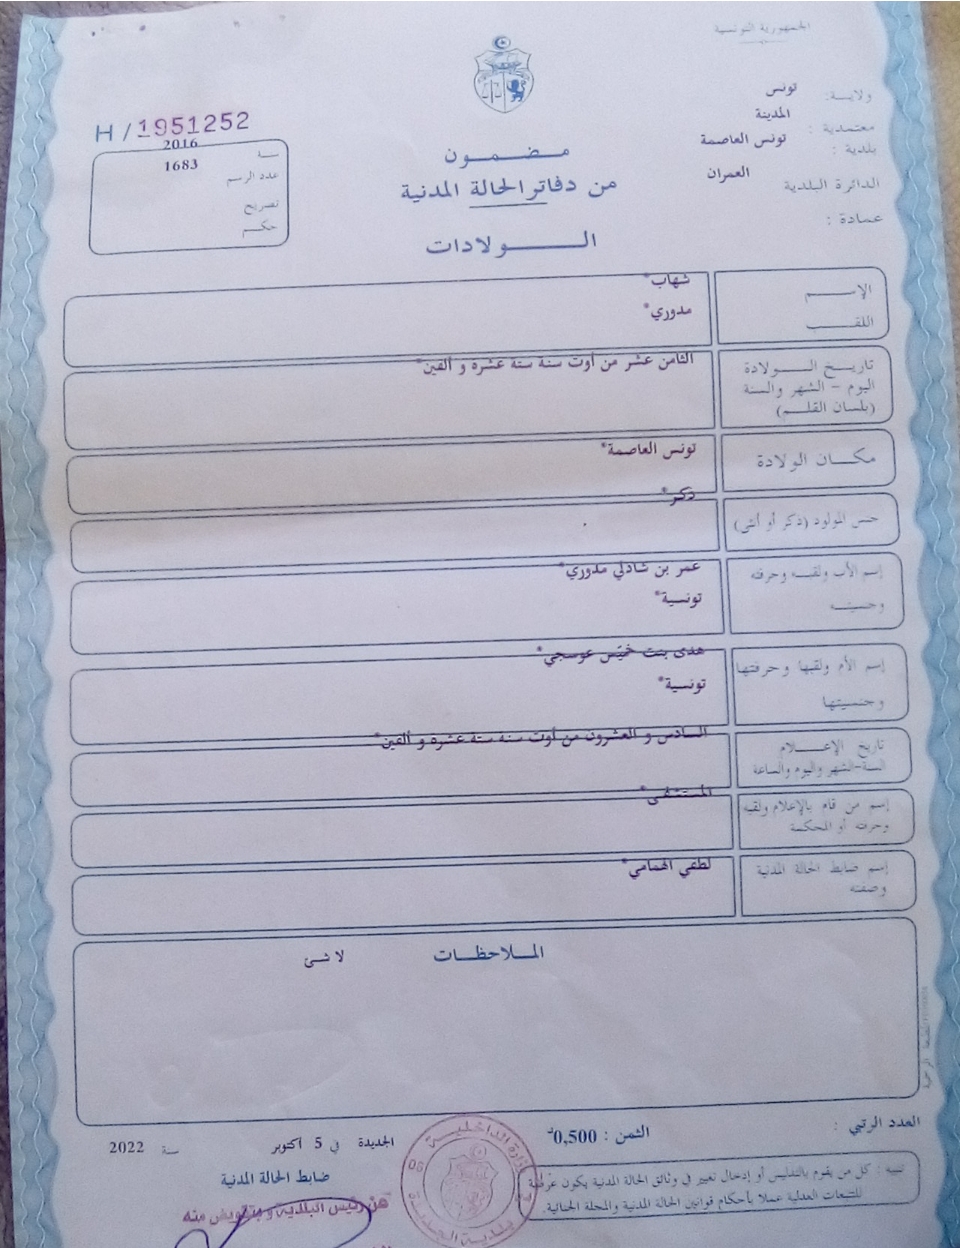 الجمهورية التونسية
ولاية: تونس
معتمدية: المدينة
بلدية: تونس العاصمة
الدائرة البلدية العمران
عمادة:
H/1951252
سنة 2016
عدد الرسم 1683
تصريح
حكم
مضمون
من دفاتر الحالة المدنية
الولادات
الإسم شهاب*
اللقب مدوري*
تاريخ الولادة الثامن عشر من أوت سنة ستة عشرة و ألفين*
اليوم - الشهر والسنة
(بلسان القلم)
مكان الولادة تونس العاصمة*
جنس المولود (ذكر أو أنثى) ذكر*
إسم الأب ولقبه وحرفته عمر بن شاذلي مدوري*
وجنسيته تونسية*
إسم الأم ولقبها وحرفتها هدى بنت خميس عوسجي*
وجنسيتها تونسية*
تاريخ الإعلام السادس و العشرون من أوت سنة ستة عشرة و ألفين*
السنة-الشهر واليوم والساعة
إسم من قام بالإعلام ولقبه المستشفى*
وحرفته أو المحكمة
إسم ضابط الحالة المدنية لطفي الهمامي*
وصفته
الملاحظات لا شئ
العدد الرتبي :
الثمن : 0,500د
الجديدة في 5 أكتوبر سنة 2022
ضابط الحالة المدنية
تنبيه : كل من يقوم بالتدليس أو إدخال تغيير في وثائق الحالة المدنية يكون عرضة
للتتبعات العدلية عملا بأحكام قوانين الحالة المدنية والمجلة الجنائية.
عن رئيس البلدية وبتفويض منه
وزارة الداخلية
بلدية الجديدة